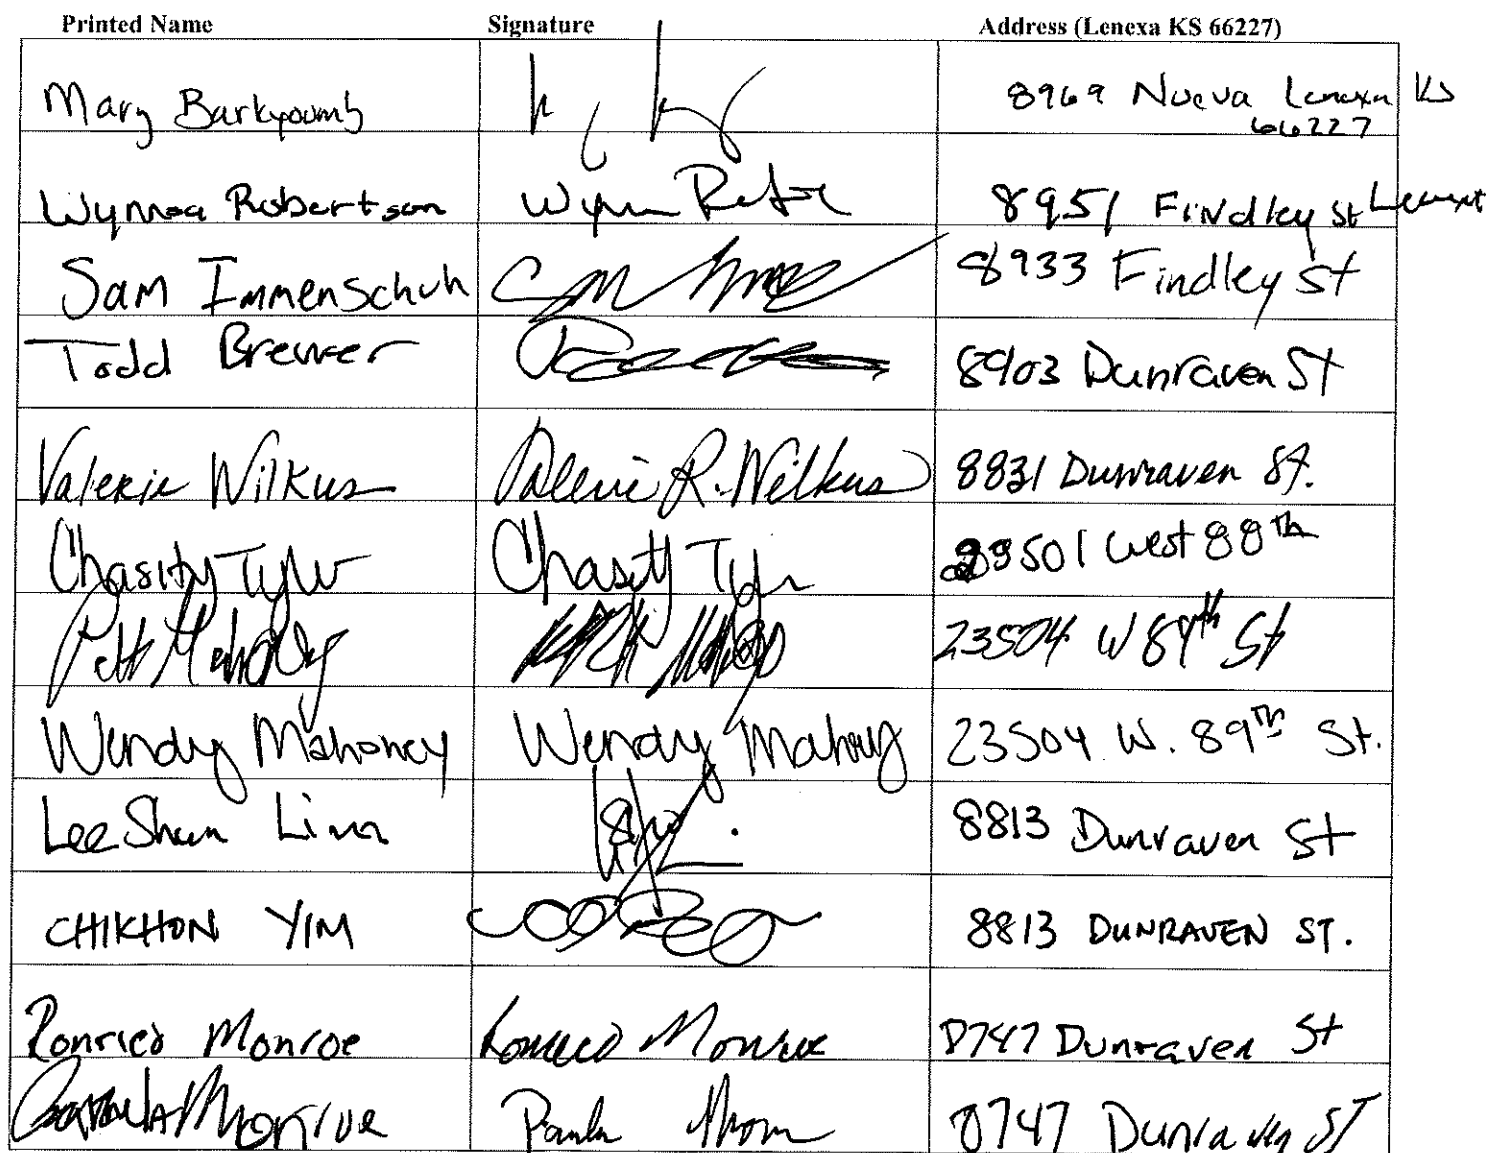 Printed Name Signature Address (Lenexa KS 66227)
Mary Barkyoumb 8969 Nueva Lenexa KS
66227
Wynnsa Robertson Wynn 8951 Findley St Lenexa
Sam Immenschuh Sam 8933 Findley St
Todd Brewer 8903 Dunraven St
Valerie Wilkus Valerie R. Wilkus 8831 Dunraven St.
Chasity Tyler Chasity Tyler 23501 West 88th
Mahoney 23504 W 89th St
Wendy Mahoney Wendy Mahoney 23504 W. 89th St.
Lee Shun Lim 8813 Dunraven St
CHIKHON YIM 8813 DUNRAVEN ST.
Monroe Monroe 8747 Dunraven St
Monroe Paula 8747 Dunraven ST